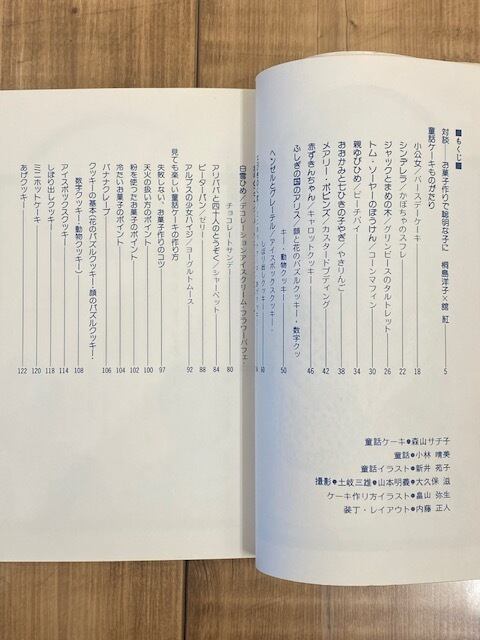 ■もくじ■
対談——お菓子作りで聡明な子に 桐島洋子×舘 紅 5
童話ケーキものがたり
小公女／バースデーケーキ 18
シンデレラ／かぼちゃのスフレ 22
ジャックとまめの木／グリンピースのタルトレット 26
トム・ソーヤーのぼうけん／コーンマフィン 30
親ゆびひめ／ピーチパイ 34
おおかみと七ひきの子やぎ／やきりんご 38
メアリー・ポピンズ／カスタードプディング 42
赤ずきんちゃん／キャロットクッキー 46
ふしぎの国のアリス／顔と花のパズルクッキー・数字クッ
キー・動物クッキー 50
ヘンゼルとグレーテル／アイスボックスクッキー・
しぼり出しクッキー 60
白雪ひめ／デコレーションアイスクリーム・フラワーパフェ・
チョコレートサンデー 80
アリババと四十人のとうぞく／シャーベット 84
ピーターパン／ゼリー 88
アルプスの少女ハイジ／ヨーグルトムース 92
見ても楽しい童話ケーキの作り方
失敗しない、お菓子作りのコツ 97
天火の扱い方のポイント 100
粉を使ったお菓子のポイント 102
冷たいお菓子のポイント 104
バナナクレープ 106
クッキーの基本（花のパズルクッキー・顔のパズルクッキー・
数字クッキー・動物クッキー） 108
アイスボックスクッキー 114
しぼり出しクッキー 118
ミニホットケーキ 120
あげクッキー 122
童話ケーキ●森山サチ子
童話●小林 晴美
童話イラスト●新井 苑子
撮影●土岐三雄●山本明義●大久保 滋
ケーキ作り方イラスト●畠山 弥生
装丁・レイアウト●内藤 正人